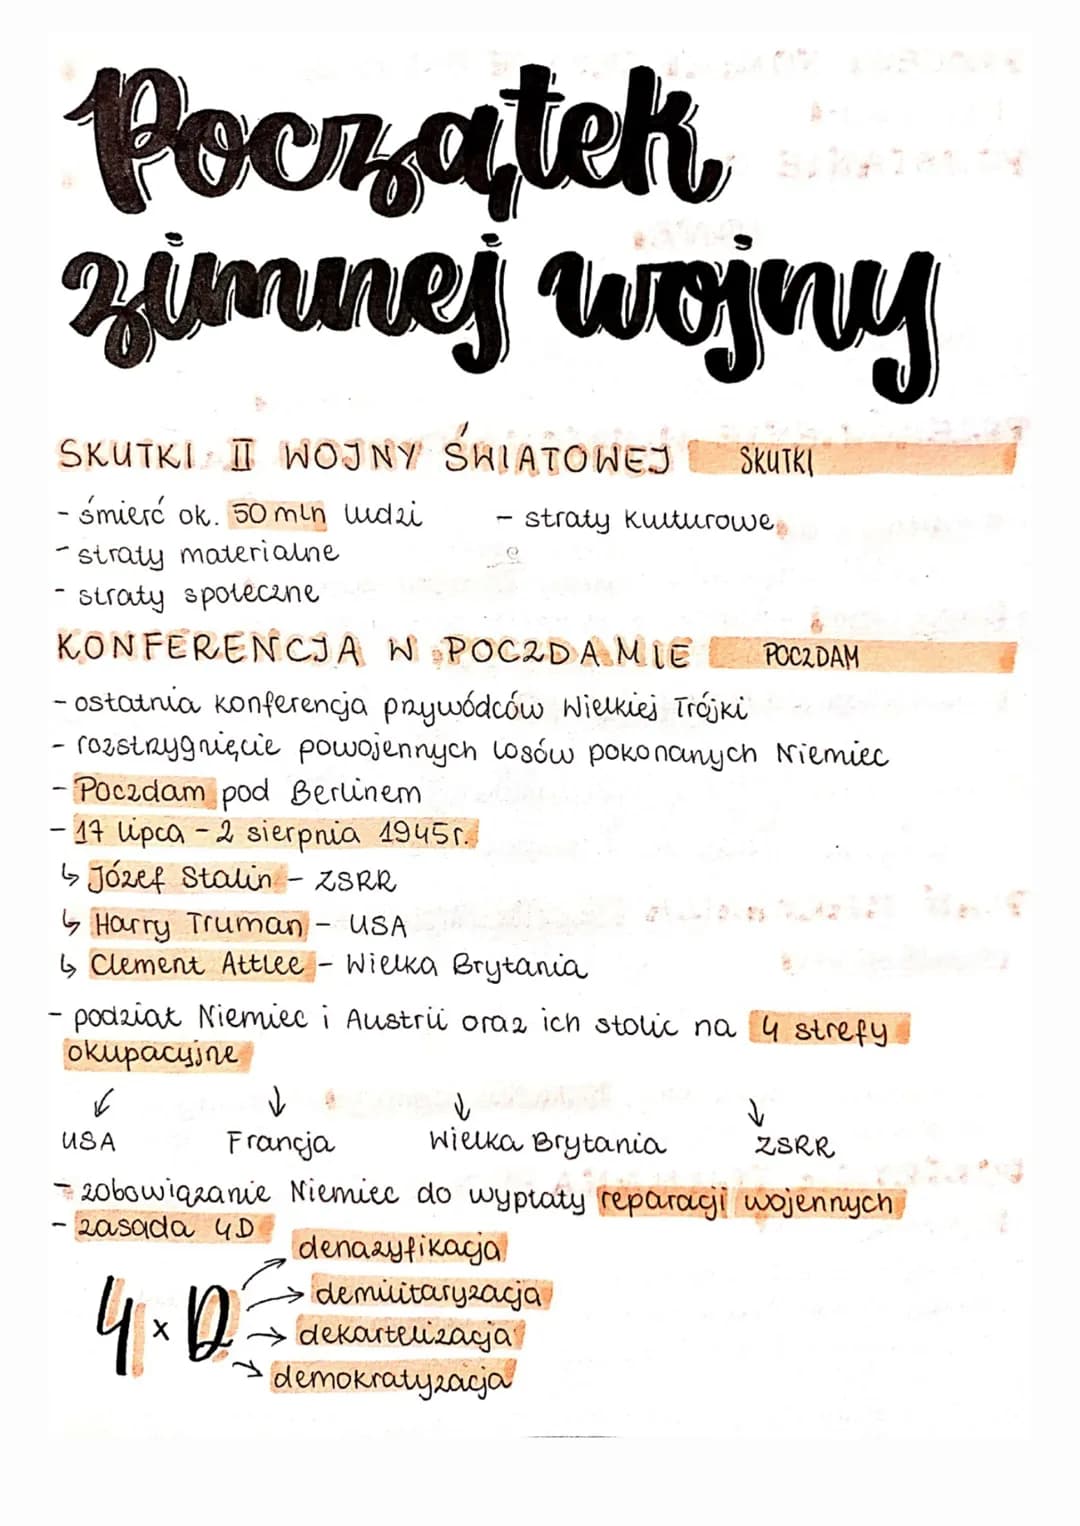 Początek
zimnej wojny
SKUTKI II WOJNY ŚWIATOWEJ SKUTKI
- śmierć ok. 50 mln ludzi - straty kulturowe
- straty materialne
- straty społeczne
KONFERENCJA W POCZDAMIE POCZDAM
- ostatnia konferencja przywódców Wielkiej Trójki
- rozstrzygnięcie powojennych losów pokonanych Niemiec
- Poczdam pod Berlinem
- 17 lipca - 2 sierpnia 1945r.
↳ Józef Stalin - ZSRR
↳ Harry Truman - USA
↳ Clement Attlee - Wielka Brytania
- podział Niemiec i Austrii oraz ich stolic na 4 strefy
okupacyjne
USA Francja Wielka Brytania ZSRR
- zobowiązanie Niemiec do wypłaty reparacji wojennych
- zasada 4D
denazyfikacja
4 x D → demilitaryzacja
→ dekartelizacja
→ demokratyzacja